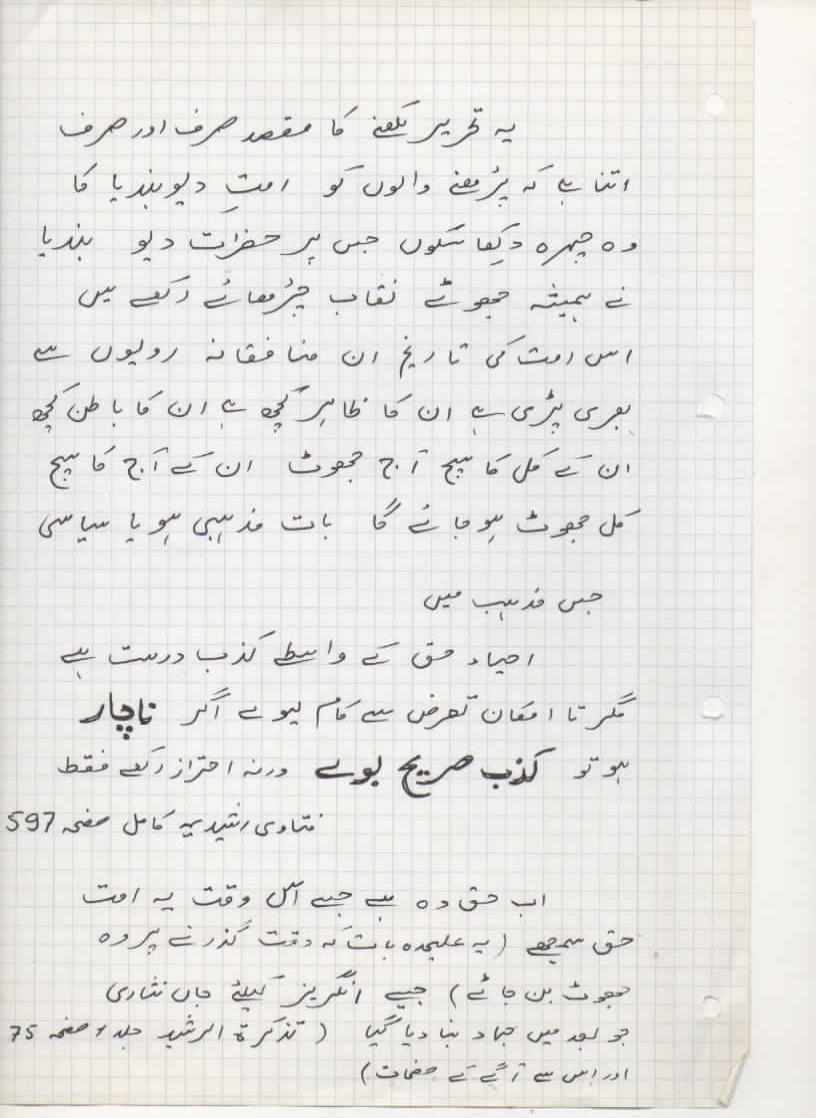 یہ تحریر لکھنے کا مقصد صرف اور صرف
اتنا ہے کہ پڑھنے والوں کو امتِ دیوبندیا کا
وہ چہرہ دکھا سکوں جس پر حضرات دیو بندیا
نے ہمیشہ جھوٹے نقاب چڑھائے رکھے ہیں
اس امت کی تاریخ ان منافقانہ رویوں سے
بھری پڑی ہے ان کا ظاہر کچھ ہے ان کا باطن کچھ
ان کے کل کا سچ آج جھوٹ ان کے آج کا سچ
کل جھوٹ ہو جائے گا بات مذہبی ہو یا سیاسی
جس مذہب میں
احیاء حق کے واسطے کذب درست ہے
مگر تا امکان تعرض سے کام لیوے اگر ناچار
ہو تو کذب صریح بولے ورنہ احتراز رکھے فقط
فتاوی رشیدیہ کامل صفحہ 597
اب حق وہ ہے جسے اس وقت یہ امت
حق سمجھے (یہ علیحدہ بات کہ وقت گذرنے پر وہ
جھوٹ بن جائے) جیسے انگریز کیلئے جاں نثاری
جو بعد میں جہاد بنا دیا گیا (تذکرۃ الرشید جلد ۱ صفحہ 75
اور اس سے آگے کے صفحات)